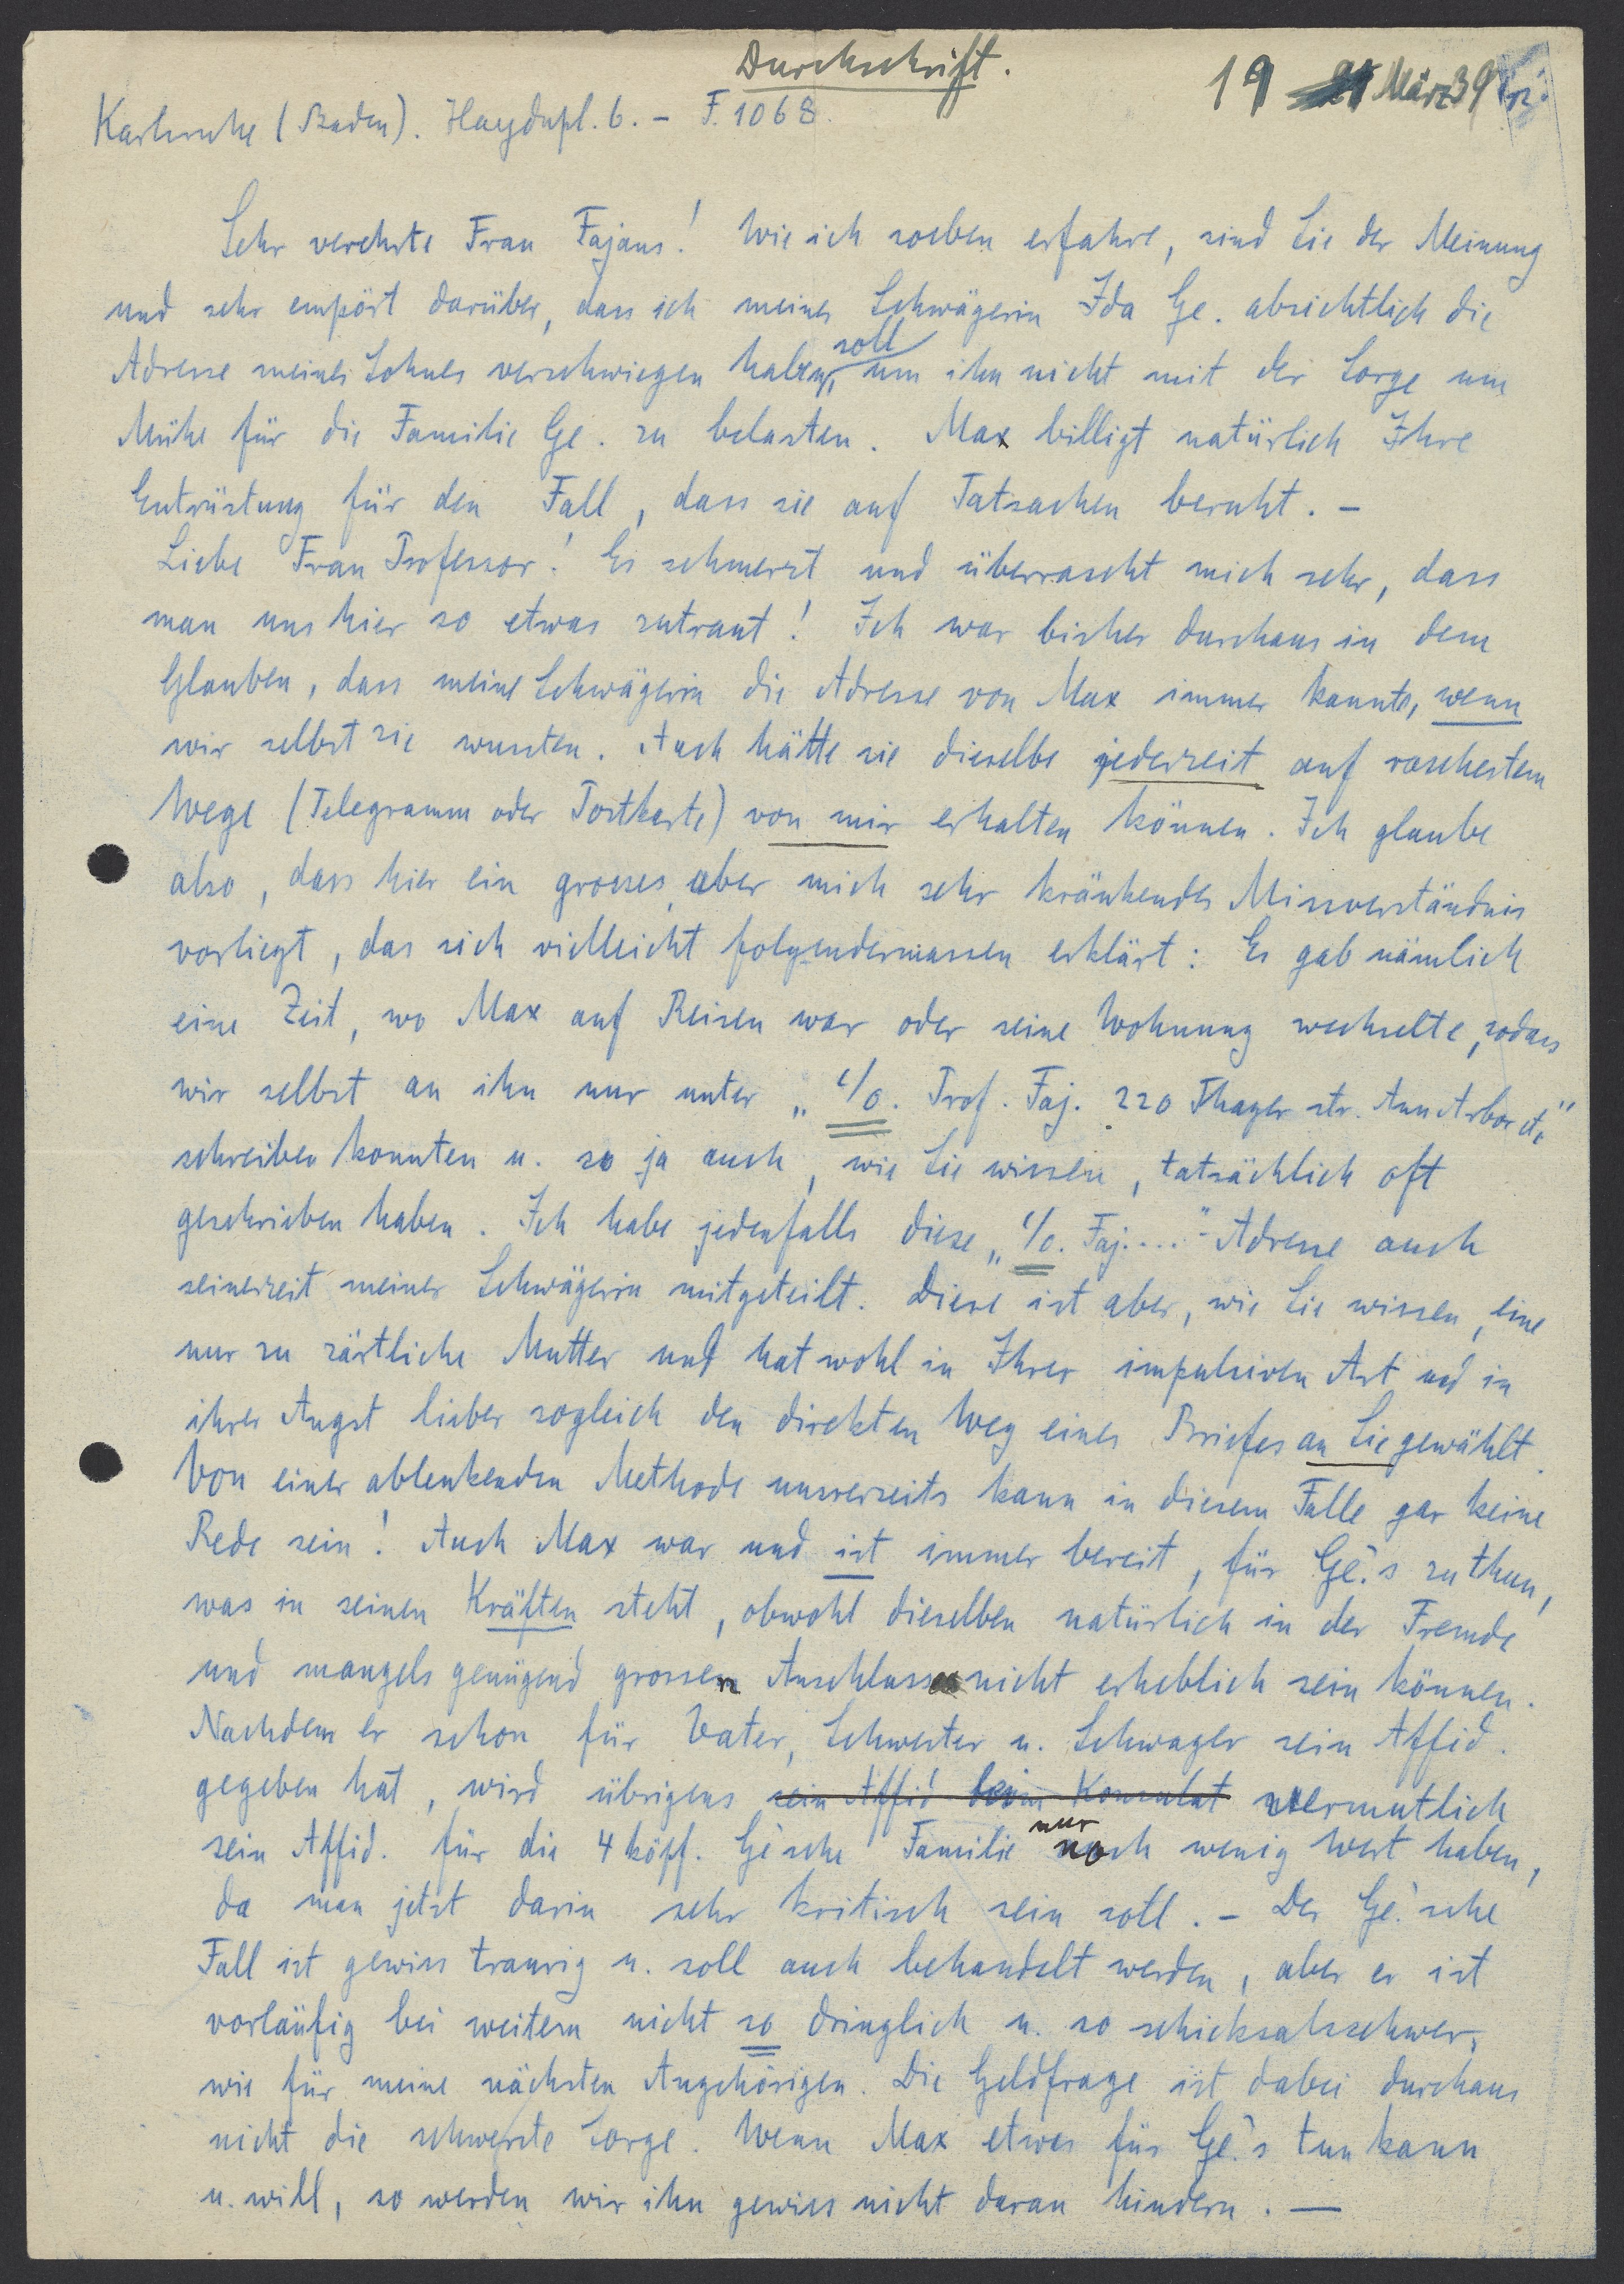 Durchschrift.
19 März 39
Karlsruhe (Baden). Haydnpl. 6. – F. 1068.
Sehr verehrte Frau Fajans! Wie ich soeben erfahre, sind Sie der Meinung
und sehr empört darüber, dass ich meiner Schwägerin Ida Ge. absichtlich die
Adresse meines Sohnes verschwiegen haben soll, um ihn nicht mit der Sorge um
Mühe für die Familie Ge. zu belasten. Max billigt natürlich Ihre
Entrüstung für den Fall, dass sie auf Tatsachen beruht. –
Liebe Frau Professor! Es schmerzt und überrascht mich sehr, dass
man uns hier so etwas zutraut! Ich war bisher durchaus in dem
Glauben, dass meine Schwägerin die Adresse von Max immer kannte, wenn
wir selbst sie wussten. Auch hätte sie dieselbe jederzeit auf raschestem
Wege (Telegramm oder Postkarte) von mir erhalten können. Ich glaube
also, dass hier ein grosses, aber mich sehr kränkendes Missverständnis
vorliegt, das sich vielleicht folgendermassen erklärt: Es gab nämlich
eine Zeit, wo Max auf Reisen war oder seine Wohnung wechselte, sodass
wir selbst an ihn nur unter „c/o. Prof. Faj. 220 Thayer str. Ann Arbor etc"
schreiben konnten u. so ja auch, wie Sie wissen, tatsächlich oft
geschrieben haben. Ich habe jedenfalls diese „c/o. Faj...."-Adresse auch
seinerzeit meiner Schwägerin mitgeteilt. Diese ist aber, wie Sie wissen, eine
nur zu zärtliche Mutter und hat wohl in Ihrer impulsiven Art und in
ihrer Angst lieber sogleich den direkten Weg eines Briefes an Sie gewählt.
Von einer ablenkenden Methode unsrerseits kann in diesem Falle gar keine
Rede sein! Auch Max war und ist immer bereit, für Ge.'s zu thun,
was in seinen Kräften steht, obwohl dieselben natürlich in der Fremde
und mangels genügend grossen Anschlusses nicht erheblich sein können.
Nachdem er schon für Vater, Schwester u. Schwager sein Affid.
gegeben hat, wird übrigens sein Affid beim Konsulat vermutlich
sein Affid. für die 4 köpf. Ge'sche Familie nur noch wenig Wert haben,
da man jetzt darin sehr kritisch sein soll. – Der Ge.'sche
Fall ist gewiss traurig u. soll auch behandelt werden, aber er ist
vorläufig bei weitem nicht so dringlich u. so schicksalsschwer,
wie für meine nächsten Angehörigen. Die Geldfrage ist dabei durchaus
nicht die schwerste Sorge. Wenn Max etwas für Ge.'s tun kann
u. will, so werden wir ihn gewiss nicht daran hindern. —